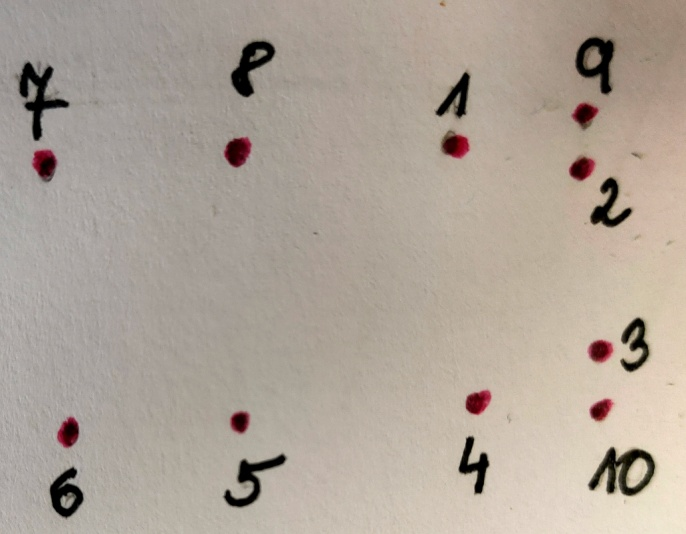 7 8 1 9
2
3
6 5 4 10